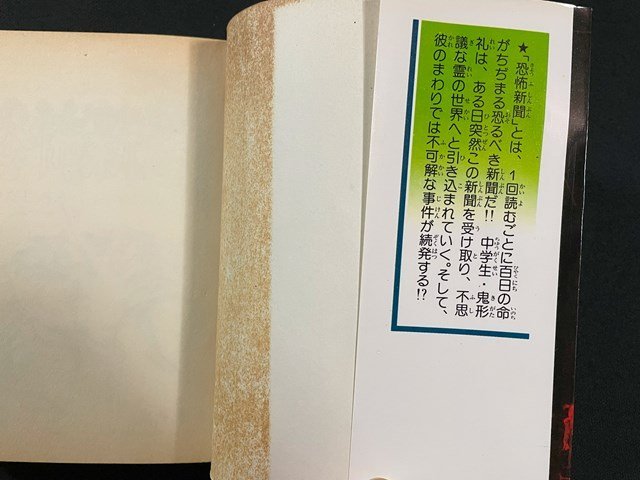 ★「恐怖新聞」とは、1回読むごとに百日の命
がちぢまる恐るべき新聞だ!! 中学生・鬼形
礼は、ある日突然この新聞を受け取り、不思
議な霊の世界へと引き込まれていく。そして、
彼のまわりでは不可解な事件が続発する!?